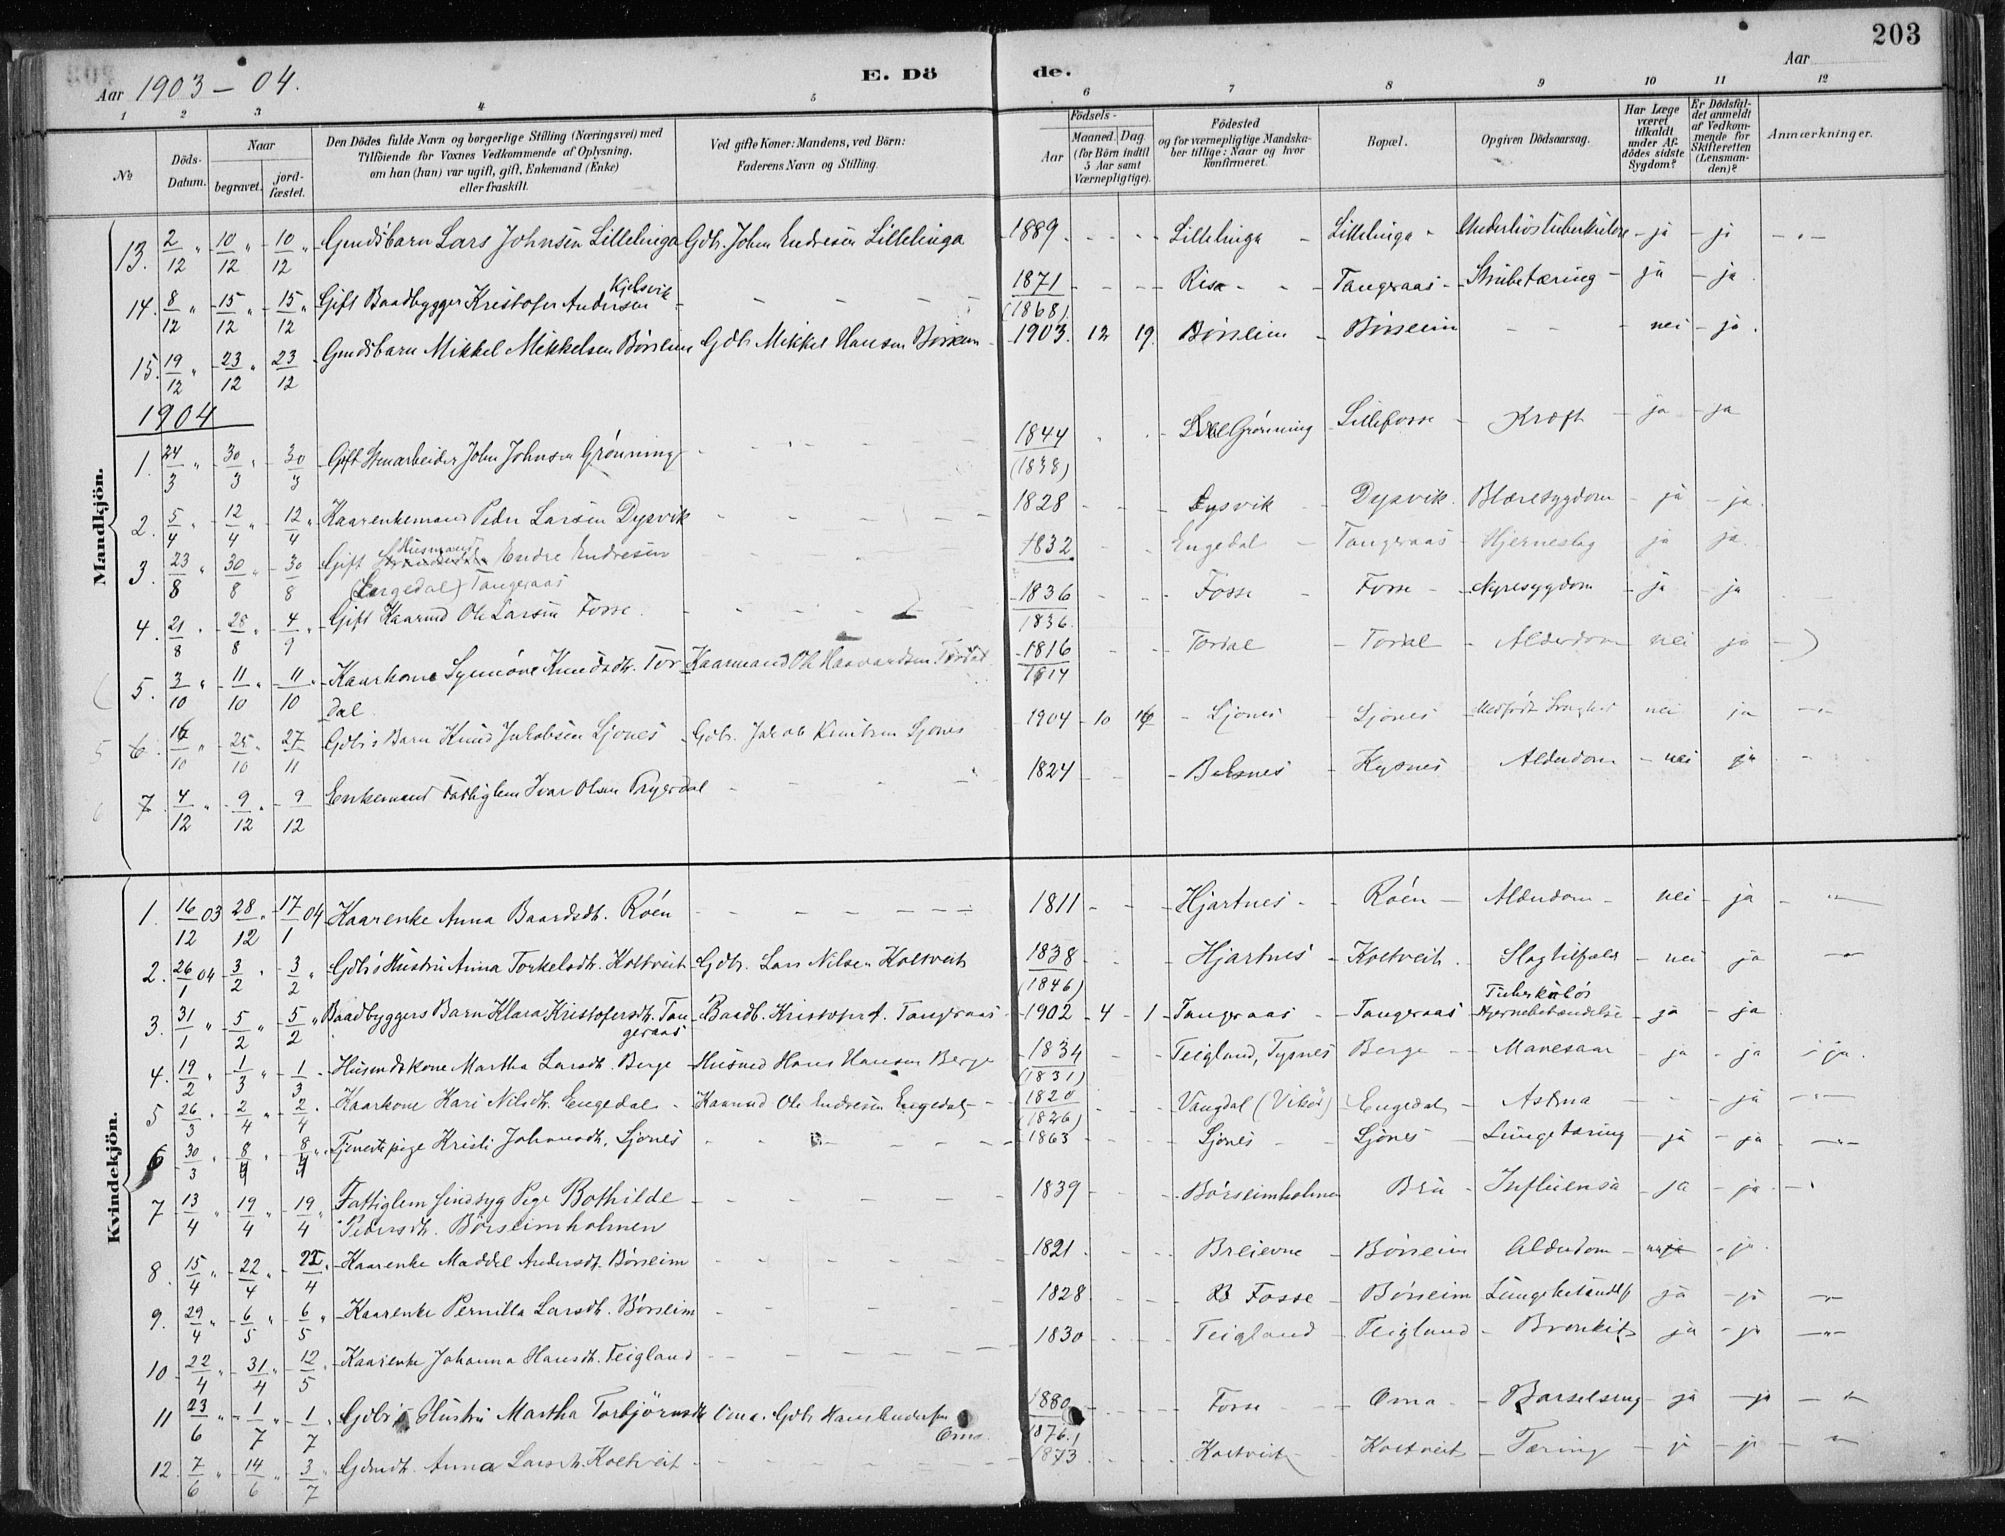 203
Aar 1903 - 04. E. Dö de. Aar
1 2 3 4 5 6 7 8 9 10 11 12
No Döds-Datum. Naar begravet. jord-fæstet. Den Dödes fulde Navn og borgerlige Stilling (Næringsvei) med Tilföiende for Voxnes Vedkommende af Oplysning, om han (hun) var ugift, gift, Enkemand (Enke) eller fraskilt. Ved gifte Koner: Mandens, ved Börn: Faderens Navn og Stilling. Födsels- Aar Maaned. Dag. (for Börn indtil 5 Aar samt Værnepligtige). Födested og for værnepligtige Mandskaber tillige: Naar og hvor konfirmeret. Bopæl. Opgiven Dödsaarsag. Har Læge været tilkaldt under Afdödes sidste Sygdom? Er Dödsfaldet anmeldt af Vedkommende for Skifteretten (Lensmanden)? Anmærkninger.
Mandkjön.
13. 2/12 " 10/12 " 10/12 " Gmdsbarn Lars Johnsen Lillelinga Gdbr. John Endresen Lillelinga 1889 Lillelinga Lillelinga Underlivstuberkulose ja ja
14. 8/12 " 15/12 " 15/12 " Gift Baadbygger Kristofer Andersen Kjelsvik 1871 (1868) Risa Tangeraas Strubetæring ja ja
15. 19/12 " 23/12 " 23/12 Gmdsbarn Mikkel Mikkelsen Börseim Gdbr Mikkel Hansen Börseim 1903 12 19. Börseim Börseim nei ja
1904
1. 24/3 " 30/3 " 30/3 Gift Stenarbeider John Johnsen Grönning 1844 (1838) Grönning Lillefosse Kræft ja ja
2. 5/4 " 12/4 " 12/4 " Kaarenkemand Peder Larsen Dysvik 1828 Dysvik Dysvik Blæresygdom ja ja.
3. 23/8 " 30/8 " 30/8 Gift Husmand Endre Endresen (Engedal) Tangeraas 1832 Engedal Tangeraas Hjerneslag ja ja
4. 21/8 " 28/8 " 4/9 " Gift Kaarmd Ole Larsen Fosse 1836 1836 Fosse Fosse Nyresygdom ja ja
5. 3/10 " 11/10 11/10 " Kaarkone Synnöve Knudsdtr. Tordal Kaarmand Ole Haavardsen Tordal 1816 1814 Tordal Tordal Alderdom nei ja
5 6. 16/10 " 25/10 27/11 Gdbrs Barn Knud Jakobsen Ljones Gdbr. Jakob Knutsen Ljones 1904 10 16 Ljones Ljones Medfödt Svaghed nei ja
6 7. 4/12 " 9/12 " 9/12 Enkemand Fattiglem Ivar Olsen 1824 Belsnes Kysnes Alderdom nei ja
Kvindekjön.
1. 16/12 03 28/12 " 17/1 04 Kaarenke Anna Baardsdtr. Röen 1811 Hjartnes Röen Alderdom nei ja "
2. 26/1 04 3/2 " 3/2 " Gdbrs Hustru Anna Torkelsdtr. Koltveit Gdbr. Lars Nilsen Koltveit 1838 (1846) Hjartnes Koltveit Slagtilfæld nei ja "
3. 31/1 " 5/2 " 5/2 " Baadbyggers Barn Klara Kristofersdtr. Tangeraas Baadb. Kristofer A. Tangeraas 1902 4 1 Tangeraas Tangeraas Tuberkulös Hjernebetændelse ja ja
4. 19/2 " 1/3 " 1/3 Husmdskone Martha Larsdtr. Berge Husmd Hans Hansen Berge 1834 (1831) Teigland, Tysnes Berge Mavesaar ja ja ja.
5 26/3 " 2/4 " 2/4 " Kaarkone Kari Nilsdtr. Engedal Kaarmd Ole Endresen Engedal 1820 (1826) Vangdal (Vikör) Engedal Astma ja
6 30/3 " 8/4 " 8/4 " Tjenestepige Kristi Johnsdtr. Ljones 1863 Ljones Ljones Lungetæring ja ja "
7 13/4 " 19/4 " 19/4 Fattiglem sindsyg Pige Bothilde Pedersdtr. Börseimholmen 1839 Börseimholmen Bru Influensa ja ja
8. 15/4 " 22/4 " 22/4 " Kaarenke Maddel Andersdtr. Börseim 1821. Breievne Börseim Alderdom ja
9. 29/4 " 6/5 " 6/5 " Kaarenke Pernilla Larsdtr. Börseim 1828 Fosse Börseim Lungebetændelse ja ja "
10 22/4 " 31/4 12/5 " Kaarenke Johanna Hansdtr. Teigland 1830 Teigland Teigland Bronkit ja ja "
11 23/6 " 1/7 " 1/7 Gdbrs Hustru Martha Torbjörnsdtr Oma. Gdbr Hans Andersen Oma. 1880 1876 Fosse Oma Barselseng ja ja "
12. 7/6 " 14/6 " 3/7 " Gdmdtr. Anna Larsdtr. Koltveit 1873 Koltveit Koltveit Tæring ja ja "